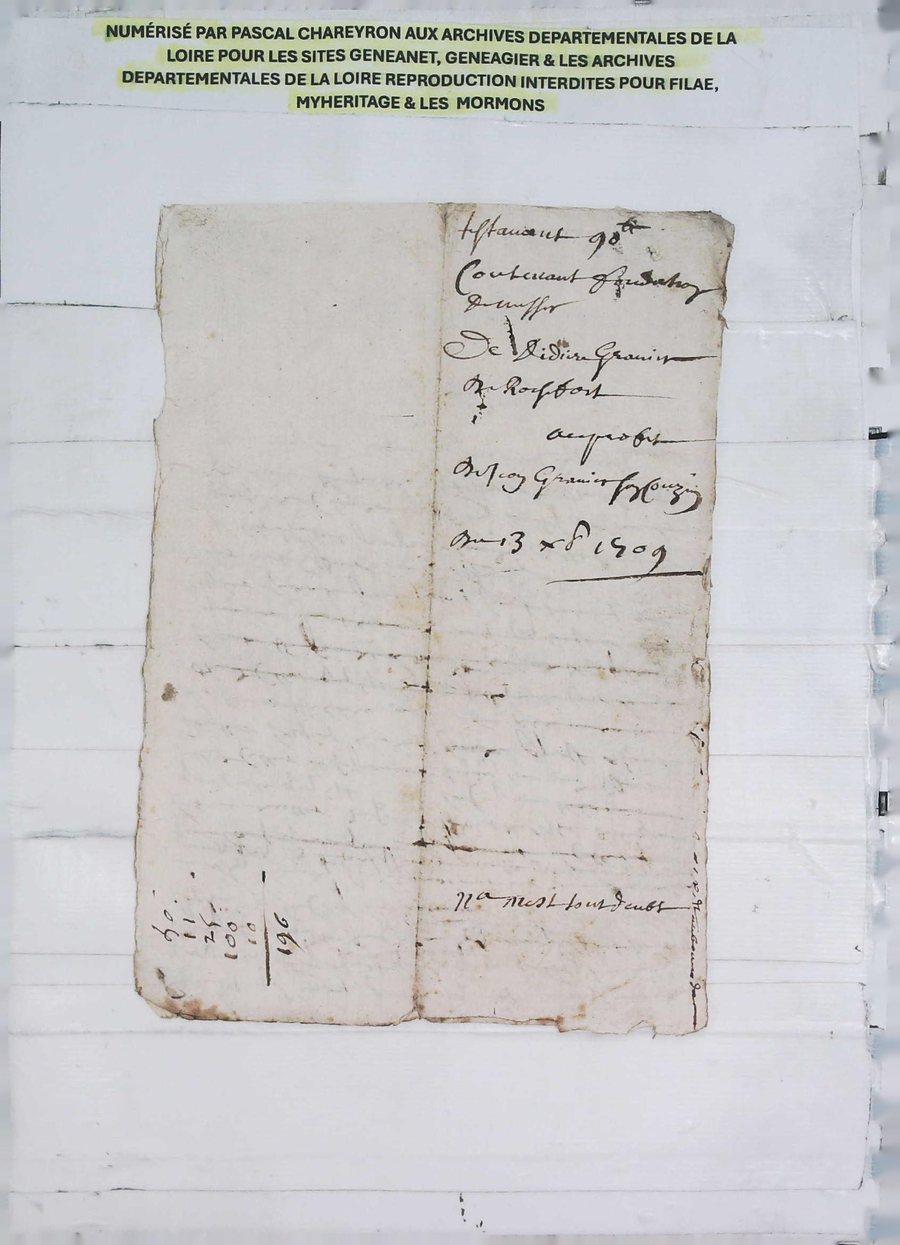 NUMÉRISÉ PAR PASCAL CHAREYRON AUX ARCHIVES DEPARTEMENTALES DE LA
LOIRE POUR LES SITES GENEANET, GENEAGIER & LES ARCHIVES
DEPARTEMENTALES DE LA LOIRE REPRODUCTION INTERDITES POUR FILAE,
MYHERITAGE & LES MORMONS
testament
Contenant fondation
de messes
De Didier Granier
De Rochfort
au proffit
De Jean Granier son Couzin
Du 13 xb 1709
50
11
25
100
10
196